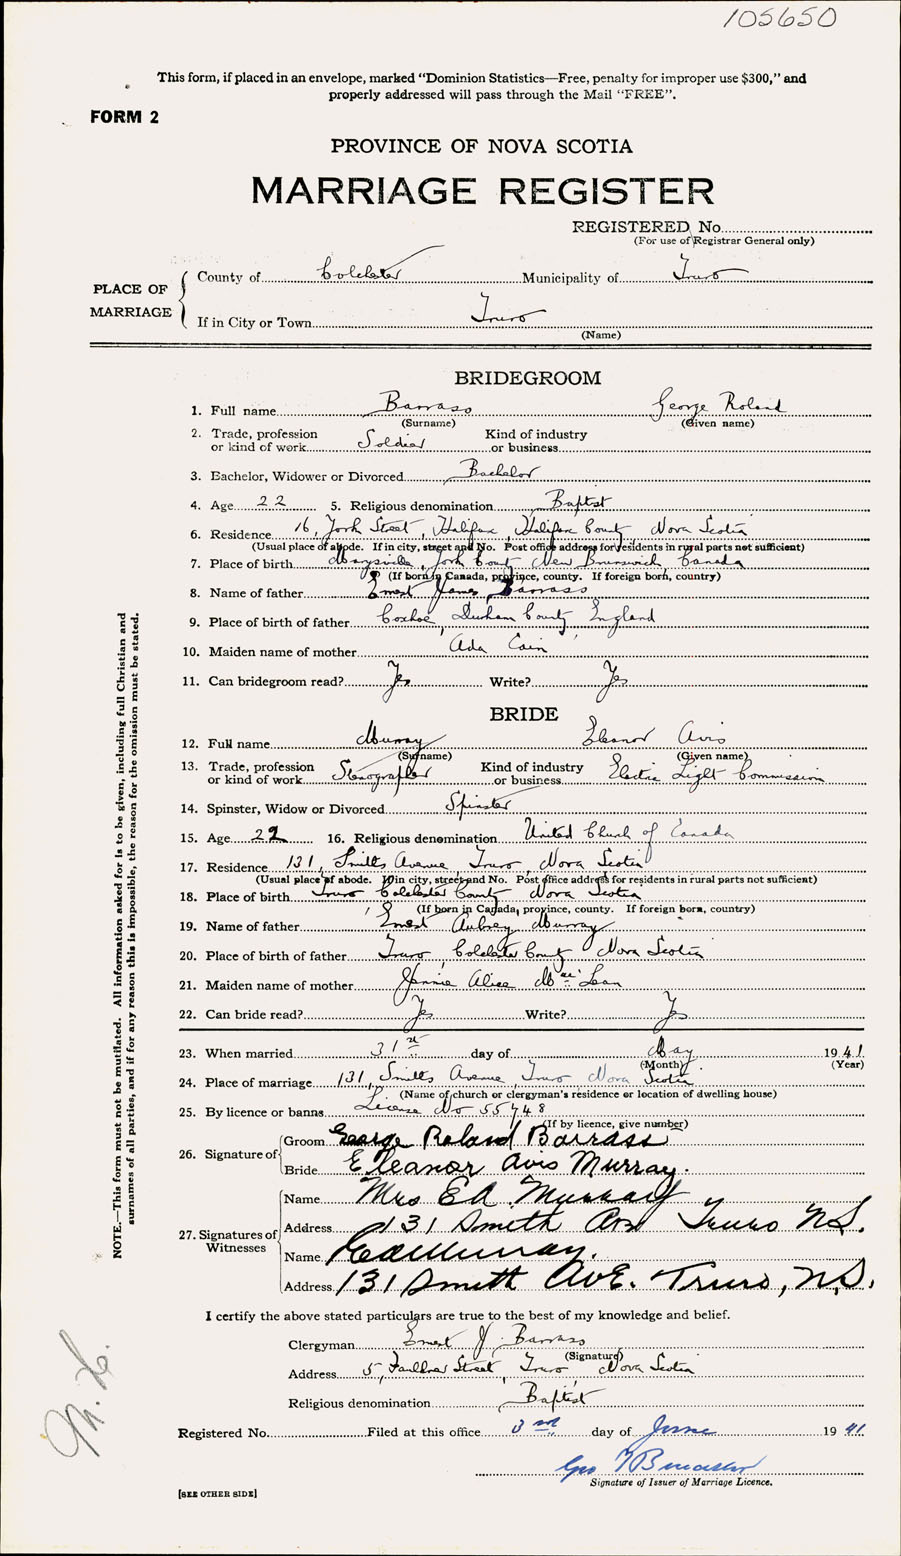 105650
This form, if placed in an envelope, marked "Dominion Statistics—Free, penalty for improper use $300," and
properly addressed will pass through the Mail "FREE".
FORM 2
PROVINCE OF NOVA SCOTIA
MARRIAGE REGISTER
REGISTERED No
(For use of Registrar General only)
PLACE OF MARRIAGE
County of Colchester Municipality of Truro
If in City or Town Truro
(Name)
BRIDEGROOM
1. Full name Barrass George Roland
(Surname) (Given name)
2. Trade, profession or kind of work Soldier Kind of industry or business
3. Bachelor, Widower or Divorced Bachelor
4. Age 22 5. Religious denomination Baptist
6. Residence 16, York Street, Halifax, Halifax County Nova Scotia
(Usual place of abode. If in city, street and No. Post office address for residents in rural parts not sufficient)
7. Place of birth Marysville, York County New Brunswick, Canada
(If born in Canada, province, county. If foreign born, country)
8. Name of father Ernest James Barrass
9. Place of birth of father Coxhoe, Durham County England
10. Maiden name of mother Ada Cain
11. Can bridegroom read? Yes Write? Yes
BRIDE
12. Full name Murray Eleanor Avis
(Surname) (Given name)
13. Trade, profession or kind of work Stenographer Kind of industry or business Electric Light Commission
14. Spinster, Widow or Divorced Spinster
15. Age 22 16. Religious denomination United Church of Canada
17. Residence 131, Smiths Avenue Truro, Nova Scotia
(Usual place of abode. If in city, street and No. Post office address for residents in rural parts not sufficient)
18. Place of birth Truro Colchester County Nova Scotia
(If born in Canada, province, county. If foreign born, country)
19. Name of father Ernest Aubrey Murray
20. Place of birth of father Truro, Colchester County Nova Scotia
21. Maiden name of mother Jennie Alice MacLean
22. Can bride read? Yes Write? Yes
23. When married 31st day of May 1941
(Month) (Year)
24. Place of marriage 131, Smiths Avenue, Truro Nova Scotia
(Name of church or clergyman's residence or location of dwelling house)
25. By licence or banns License No 55748
(If by licence, give number)
26. Signature of Groom George Roland Barrass
Bride Eleanor Avis Murray.
27. Signatures of Witnesses
Name Mrs Ed Murray
Address 131 Smith Ave Truro N.S.
Name Ed Murray.
Address 131 Smith Ave. Truro, N.S.
I certify the above stated particulars are true to the best of my knowledge and belief.
Clergyman Ernest J. Barrass
(Signature)
Address 5, Faulkner Street, Truro Nova Scotia
Religious denomination Baptist
Registered No. Filed at this office 3rd day of June 1941
Geo
Signature of Issuer of Marriage Licence.
[SEE OTHER SIDE]
NOTE.—This form must not be mutilated. All information asked for is to be given, including full Christian and
surnames of all parties, and if for any reason this is impossible, the reason for the omission must be stated.